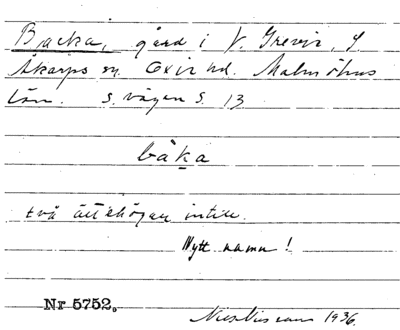 Backa, gård i V. Grevie, S.
Åkarps sn. Oxie hd. Malmöhus
län. S. vägen S. 13
båka
två ättehögar intill.
Nytt namn!
Nr 5752.
1936.